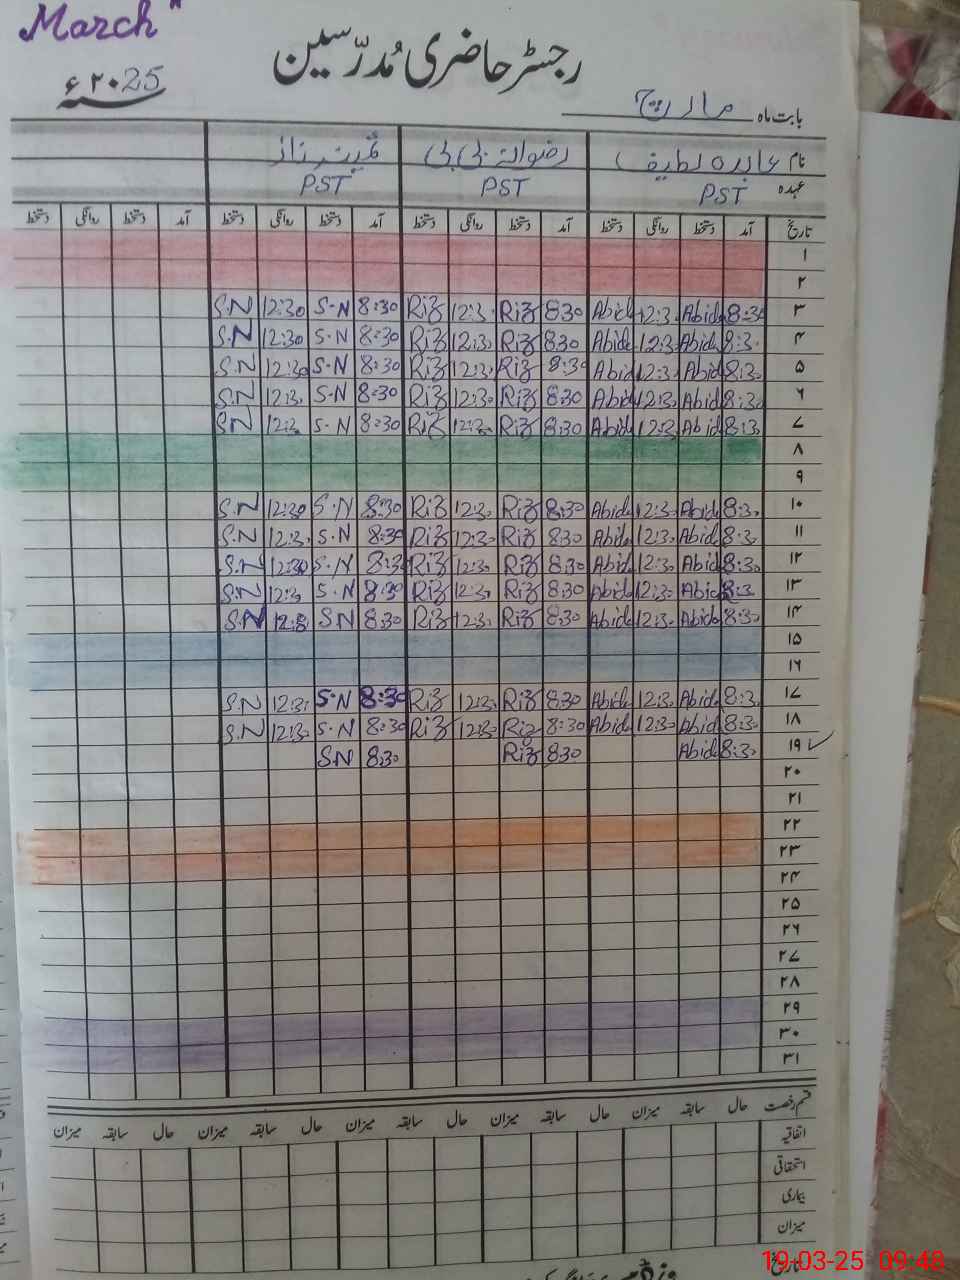 March"
رجسٹر حاضری مُدرّسین
سنہ ۲۰25ء
بابت ماہ مارچ
نام عابدہ لطیف رضوانہ بی بی ثمینہ ناز
عہدہ PST PST PST
تاریخ آمد دستخط روانگی دستخط آمد دستخط روانگی دستخط آمد دستخط روانگی دستخط آمد دستخط روانگی دستخط
۱
۲
۳ 8:30 Abida 12:3. Abida 8:30 Riz 12:3. Riz 8:30 S.N 12:30 S.N
۴ 8:3. Abida 12:3. Abida 8:30 Riz 12:3. Riz 8:30 S.N 12:30 S.N
۵ 8:3. Abida 12:3. Abida 8:30 Riz 12:3. Riz 8:30 S.N 12:30 S.N
۶ 8:30 Abida 12:3. Abida 8:30 Riz 12:30 Riz 8:30 S.N 12:3. S.N
۷ 8:3. Abida 12:3. Abida 8:30 Riz 12:3. Riz 8:30 S.N 12:3. S.N
۸
۹
۱۰ 8:3. Abida 12:3. Abida 8:30 Riz 12:3. Riz 8:30 S.N 12:30 S.N
۱۱ 8:3. Abida 12:3. Abida 8:30 Riz 12:30 Riz 8:30 S.N 12:3. S.N
۱۲ 8:30 Abida 12:3. Abida 8:30 Riz 12:30 Riz 8:30 S.N 12:30 S.N
۱۳ 8:3. Abida 12:3. Abida 8:30 Riz 12:3. Riz 8:30 S.N 12:3. S.N
۱۴ 8:3. Abida 12:3. Abida 8:30 Riz 12:3. Riz 8:30 S.N 12:3. S.N
۱۵
۱۶
۱۷ 8:3. Abida 12:3. Abida 8:30 Riz 12:3. Riz 8:30 S.N 12:3. S.N
۱۸ 8:30 Abida 12:30 Abida 8:30 Riz 12:30 Riz 8:30 S.N 12:30 S.N
۱۹ 8:30 Abida 8:30 Riz 8:30 S.N
۲۰
۲۱
۲۲
۲۳
۲۴
۲۵
۲۶
۲۷
۲۸
۲۹
۳۰
۳۱
قسم رخصت حال سابقہ میزان حال سابقہ میزان حال سابقہ میزان حال سابقہ میزان حال سابقہ میزان
اتفاقیہ
استحقاقی
بیماری
میزان
تاریخ
19-03-25 09:48